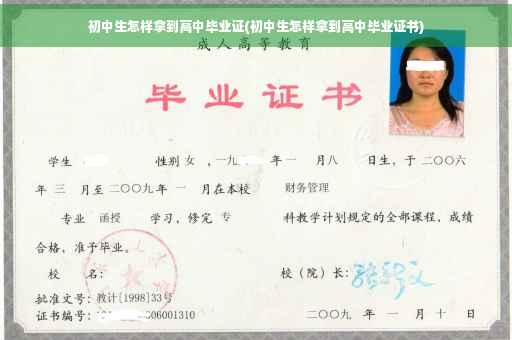 初中生怎样拿到高中毕业证(初中生怎样拿到高中毕业证书)
成人高等教育
毕业证书
学生 性别 女 ,一九 年一 月八 日生，于二〇〇六
年 三 月至二〇〇九年 一 月在本校 财务管理
专业 函授 学习，修完 专 科教学计划规定的全部课程，成绩
合格，准予毕业。
校 名： 校（院）长：
批准文号：教计[1998]33号
证书编号： 06001310 二〇〇九 年 一 月 十 日